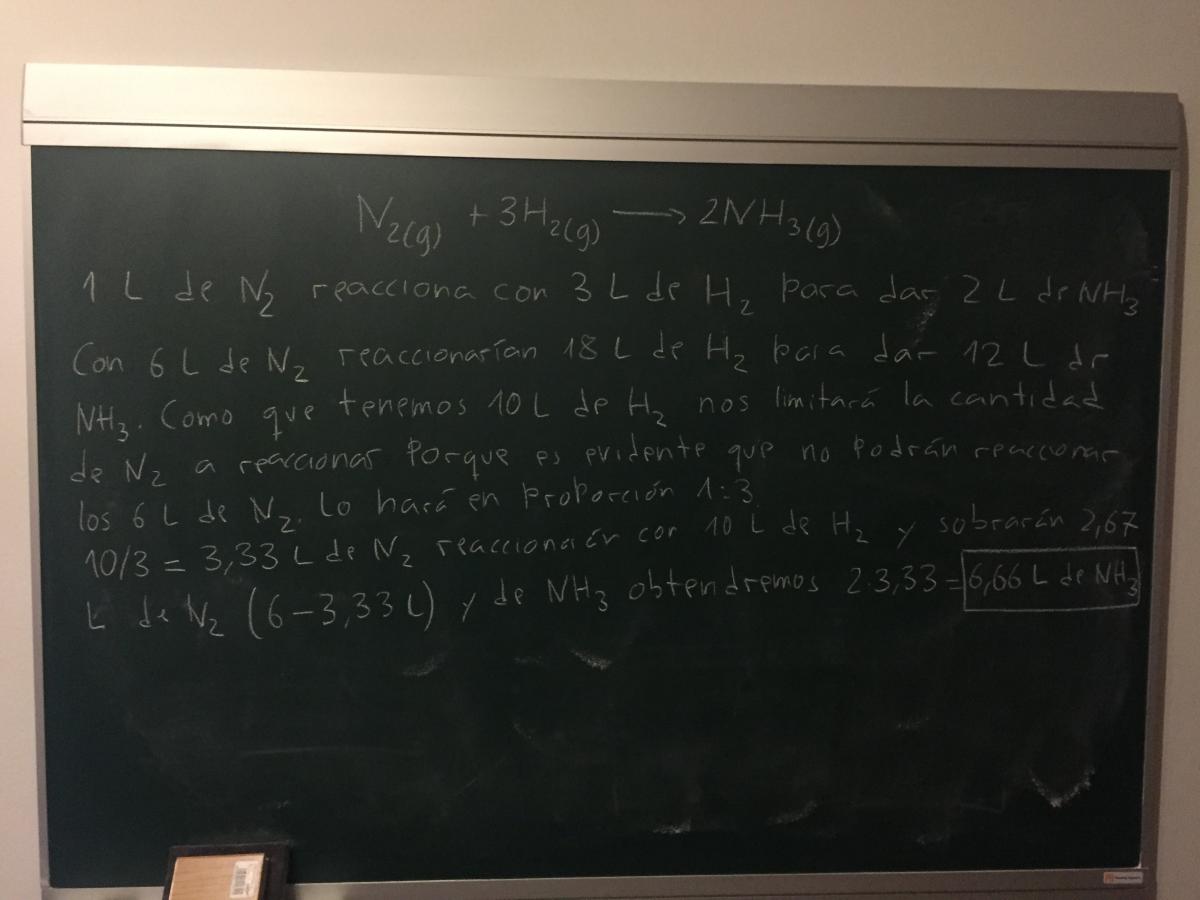 N₂(g) + 3H₂(g) → 2NH₃(g)
1 L de N₂ reacciona con 3 L de H₂ para dar 2 L de NH₃
Con 6 L de N₂ reaccionarían 18 L de H₂ para dar 12 L de
NH₃. Como que tenemos 10 L de H₂ nos limitará la cantidad
de N₂ a reaccionar porque es evidente que no podrán reaccionar
los 6 L de N₂. Lo hará en proporción 1:3.
10/3 = 3,33 L de N₂ reaccionarán con 10 L de H₂ y sobrarán 2,67
L de N₂ (6-3,33 L) y de NH₃ obtendremos 2·3,33 = 6,66 L de NH₃